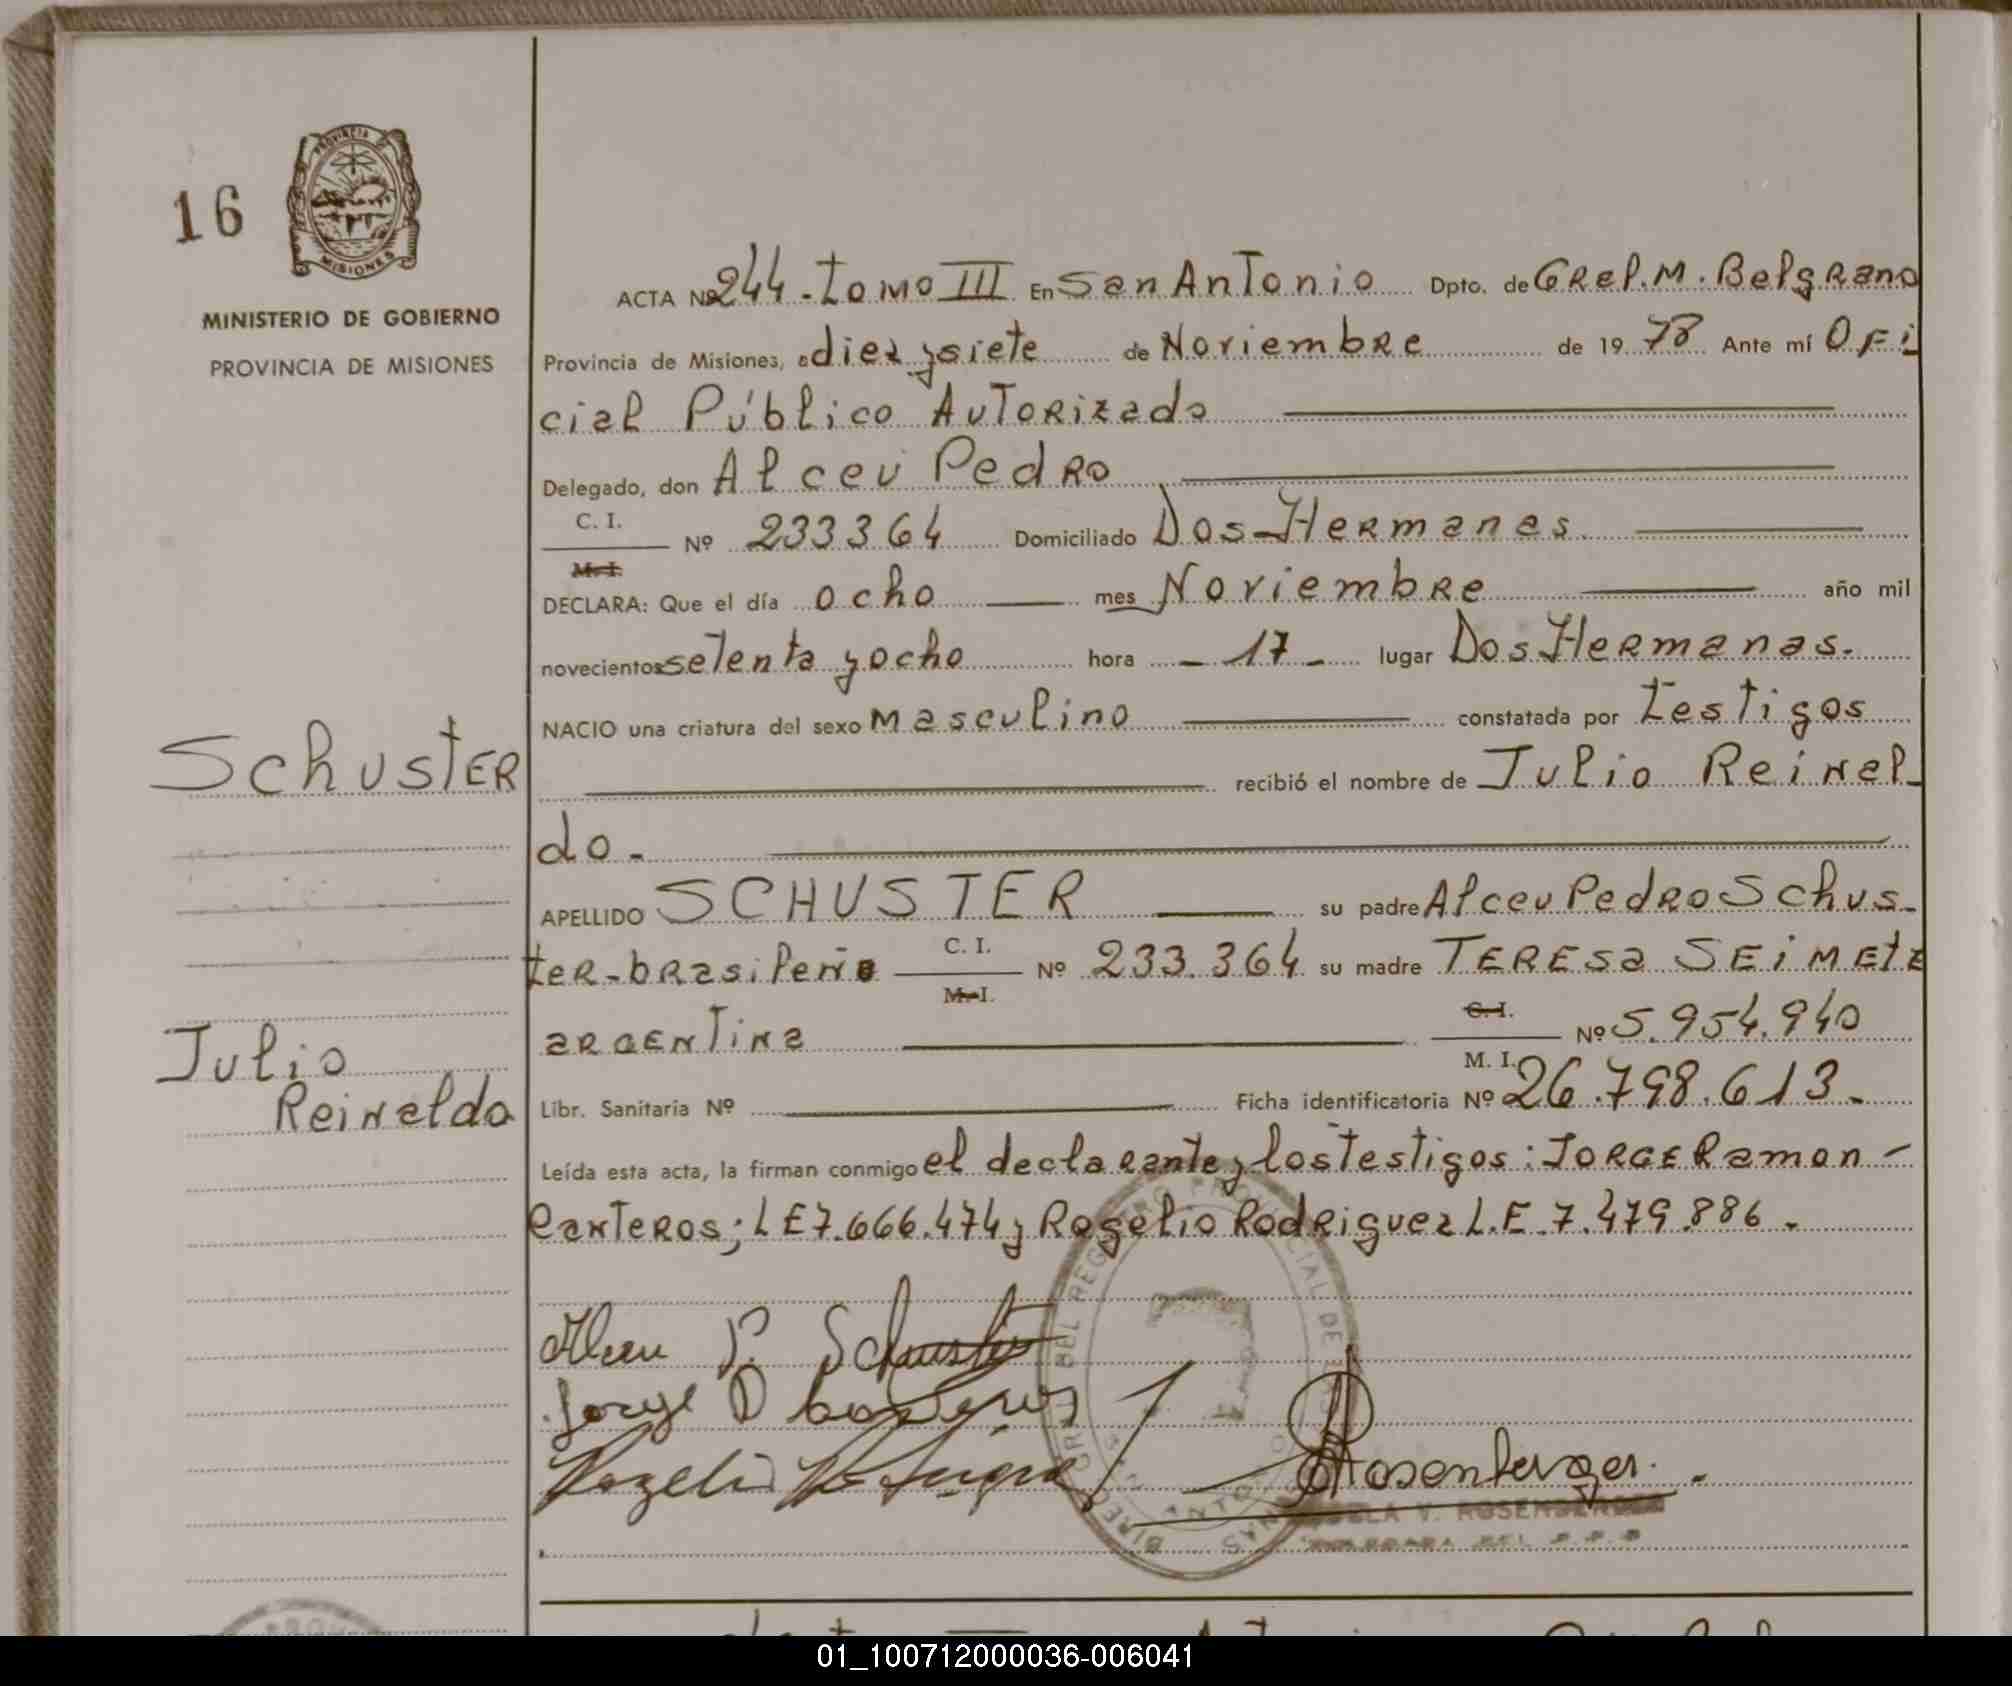 16
PROVINCIA
MISIONES
MINISTERIO DE GOBIERNO
PROVINCIA DE MISIONES
Schuster
Julio
Reinaldo
ACTA Nº 244 - Tomo III En San Antonio Dpto. de Gral. M. Belgrano
Provincia de Misiones, a diez y siete de Noviembre de 19 78 Ante mí Ofi
cial Público Autorizado
Delegado, don Alceu Pedro
C. I.
Nº 233364 Domiciliado Dos Hermanas
M. I.
DECLARA: Que el día ocho mes Noviembre año mil
novecientos setenta y ocho hora - 17 - lugar Dos Hermanas.
NACIO una criatura del sexo masculino constatada por testigos
recibió el nombre de Julio Reinal-
do -
APELLIDO SCHUSTER su padre Alceu Pedro Schus-
ter - brasileño C. I. Nº 233.364 su madre TERESA SEIMETZ
M. I.
argentina C. I. Nº 5.954.940
M. I.
Libr. Sanitaria Nº Ficha identificatoria Nº 26.798.613.-
Leída esta acta, la firman conmigo el declarante y los testigos: Jorge Ramon -
Canteros; LE 7.666.474 y Rogelio Rodriguez L.E. 7.479.886 -
Alceu P. Schuster
Jorge R Canteros
Rogelio Rodriguez
Rosenberger
V. ROSENBERGER
01_100712000036-006041